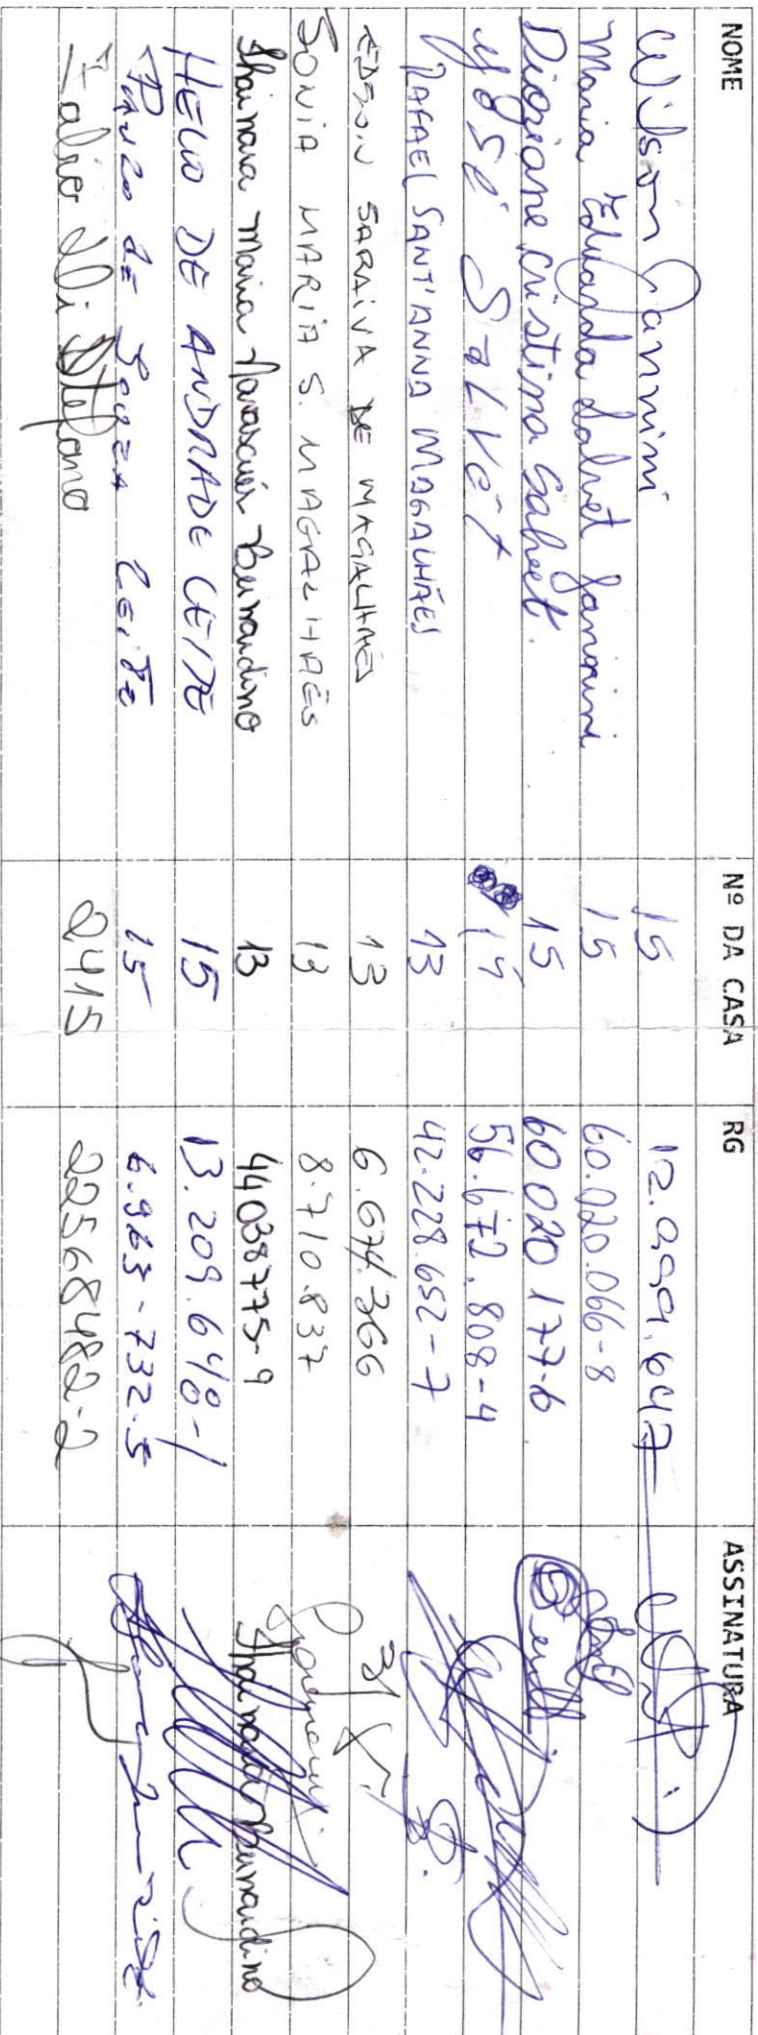 NOME Nº DA CASA RG ASSINATURA
Wilson Jannini 15 12.999.647
Maria Eduarda Salvet Jannini 15 60.020.066-8
Diogiane Cristina Salvet. 15 60 020 177-6
José Salvet 15 56.672.808-4
RAFAEL SANT'ANNA MAGALHÃES 13 42.228.652-7
EDSON SARAIVA DE MAGALHÃES 13 6.674.366
SONIA MARIA S. MAGALHÃES 13 8.710.837
Thainara Maria Bernardino 13 44038775-9 Thainara Bernardino
HELIO DE ANDRADE LEITE 15 13.209.648-1
Paulo de Souza Leite 15 6.963-732-5
Di Stefano 2415 22568482-2